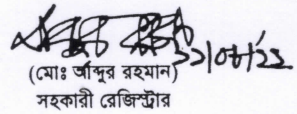 ২১/০৮/২২
(মোঃ আব্দুর রহমান)
সহকারী রেজিস্ট্রার